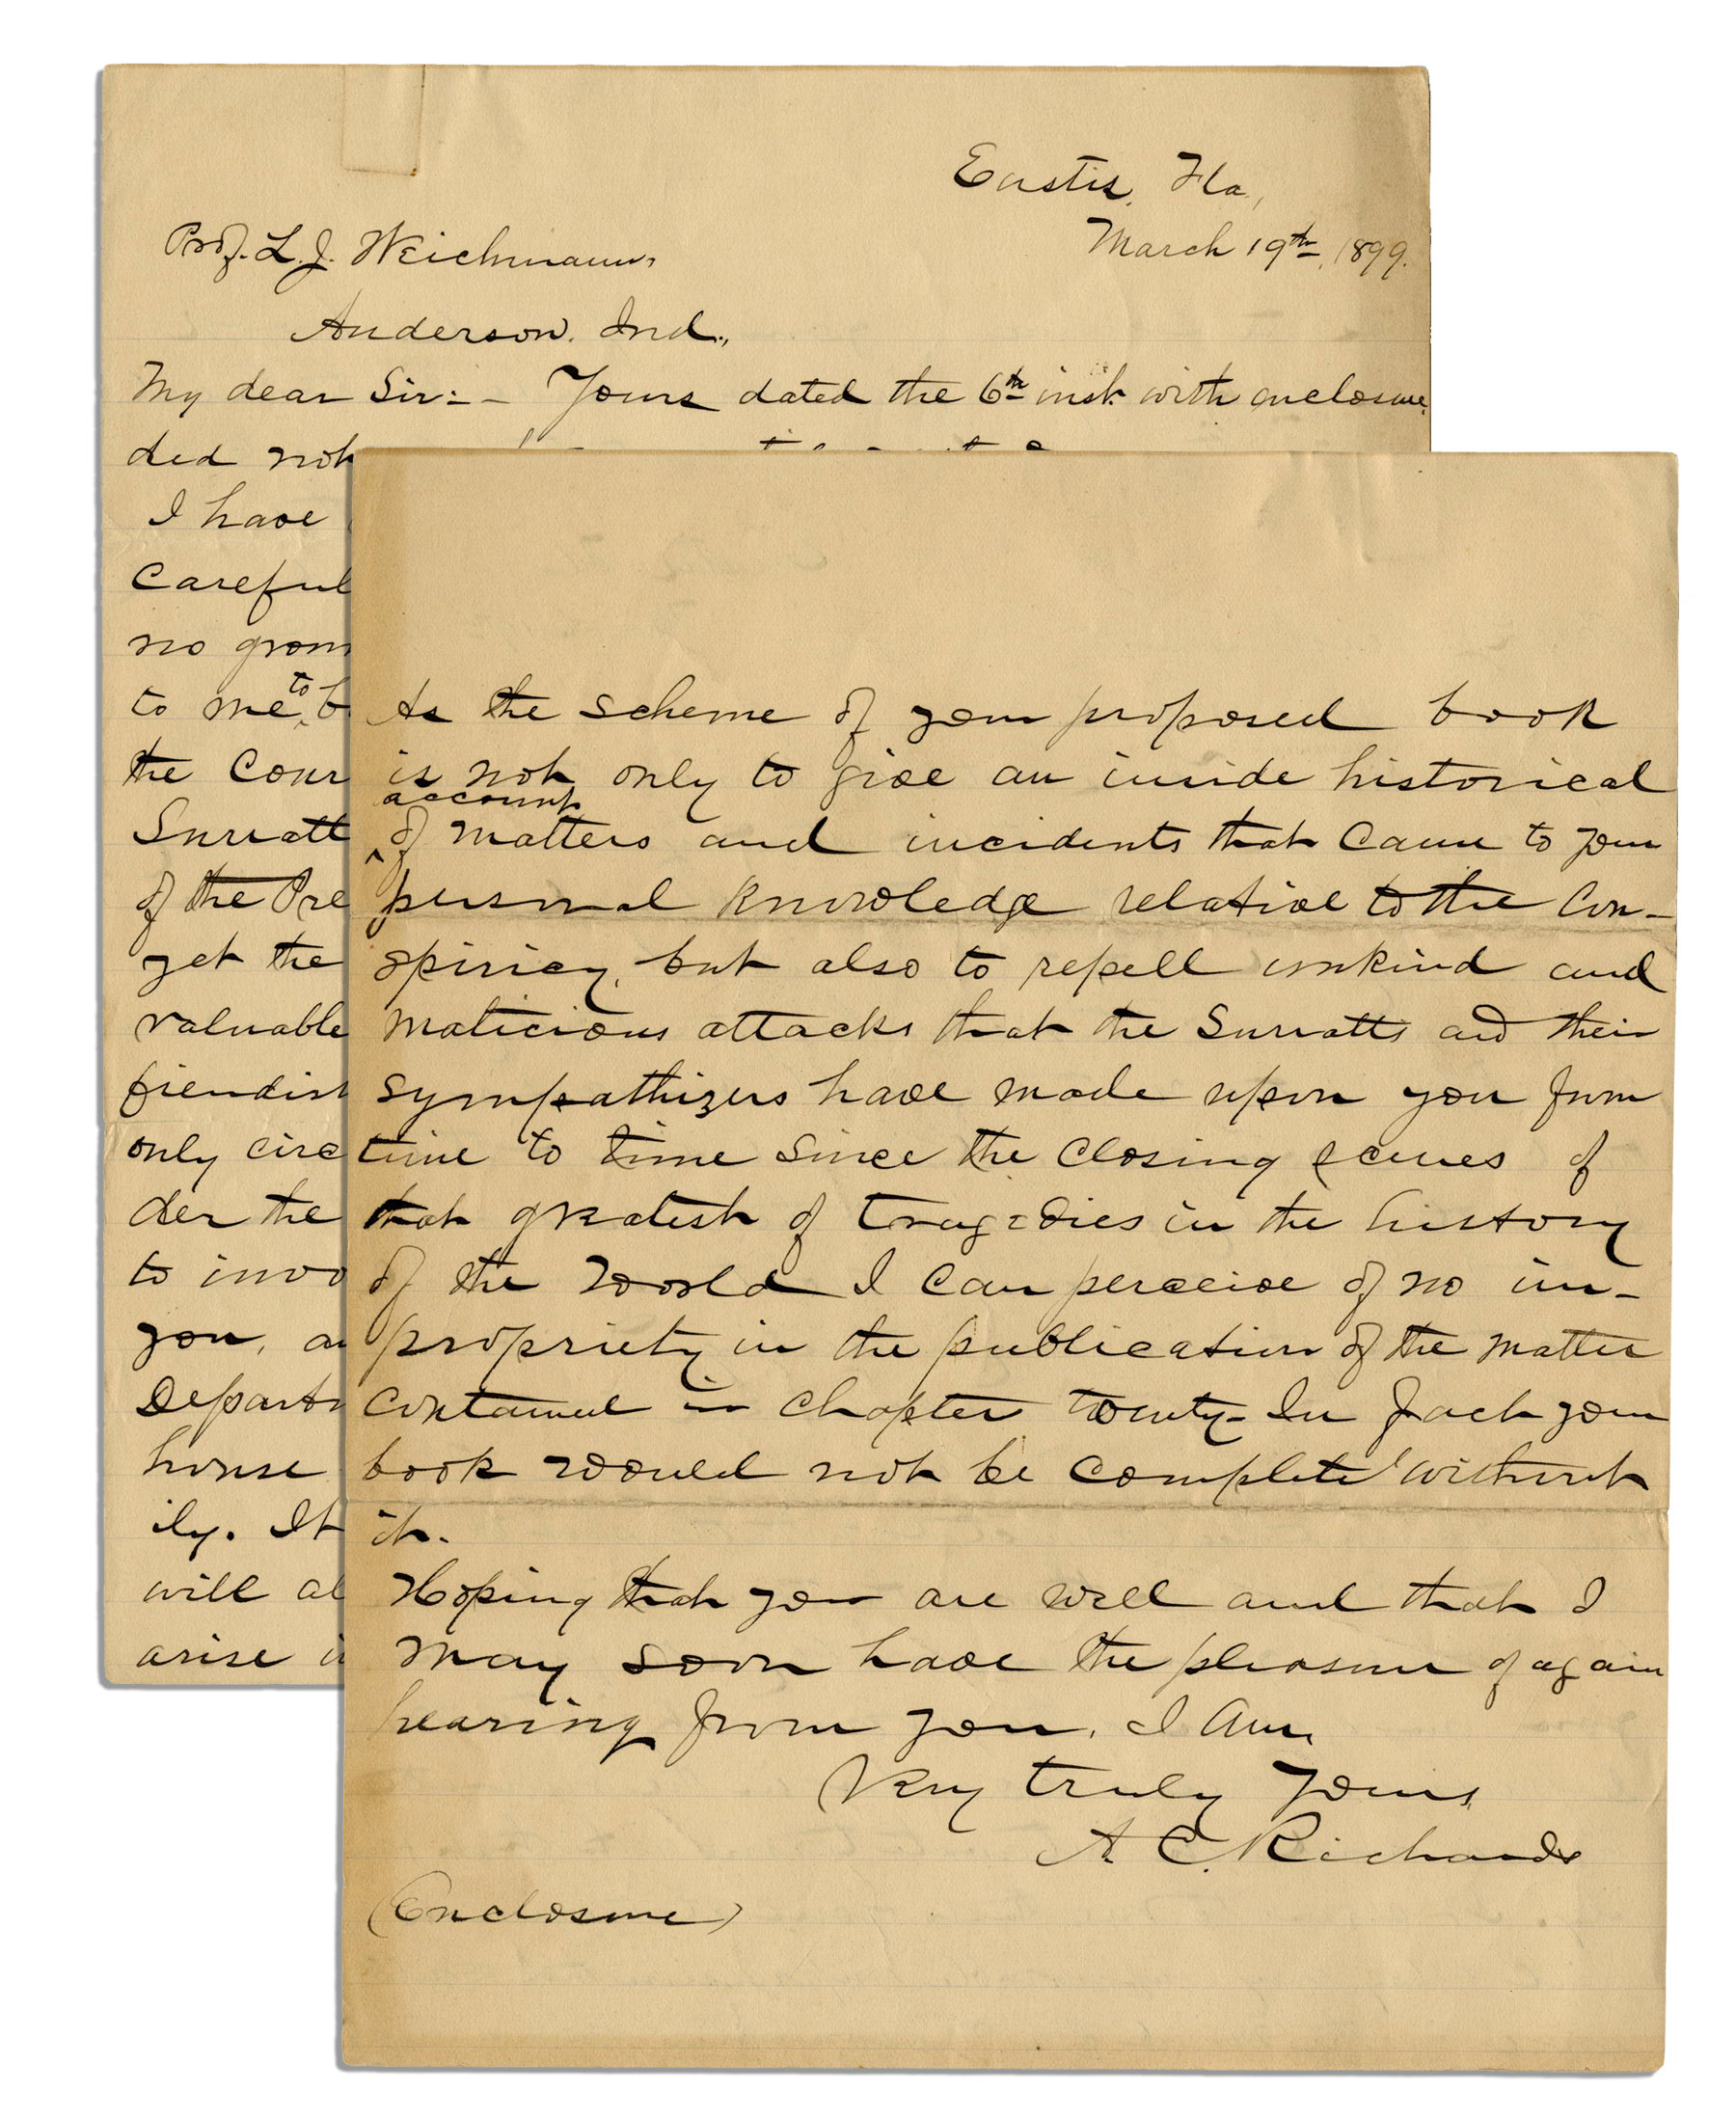 Eustis, Fla,
March 19th, 1899.
Prof. L. J. Weichmann,
Anderson, Ind.,
My dear Sir:- Yours dated the 6th inst. with enclosure
did not
I have
careful
no
to me to b
the Cour
Surratt
of the Pre
yet the
valuable
fiendish
only circ
der the
to invo
you, an
Depart
house
ily. It
will al
arise i
As the scheme of your proposed book
is not only to give an inside historical
account
of matters and incidents that came to your
personal knowledge relative to the Con-
spiricy, but also to repell unkind and
malicious attacks that the Surratts and their
sympathizers have made upon you from
time to time since the closing scenes of
that greatest of tragedies in the history
of the world I can perceive of no im-
propriety in the publication of the matter
contained in chapter twenty- In fact your
book would not be complete without
it.
Hoping that you are well and that I
may soon have the pleasure of again
hearing from you, I am,
Very truly yours,
A. C. Richards
(Enclosure)